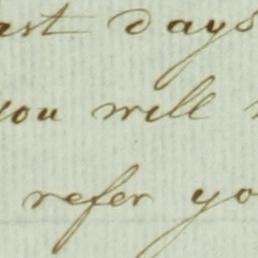 ast days
you will
refer yo